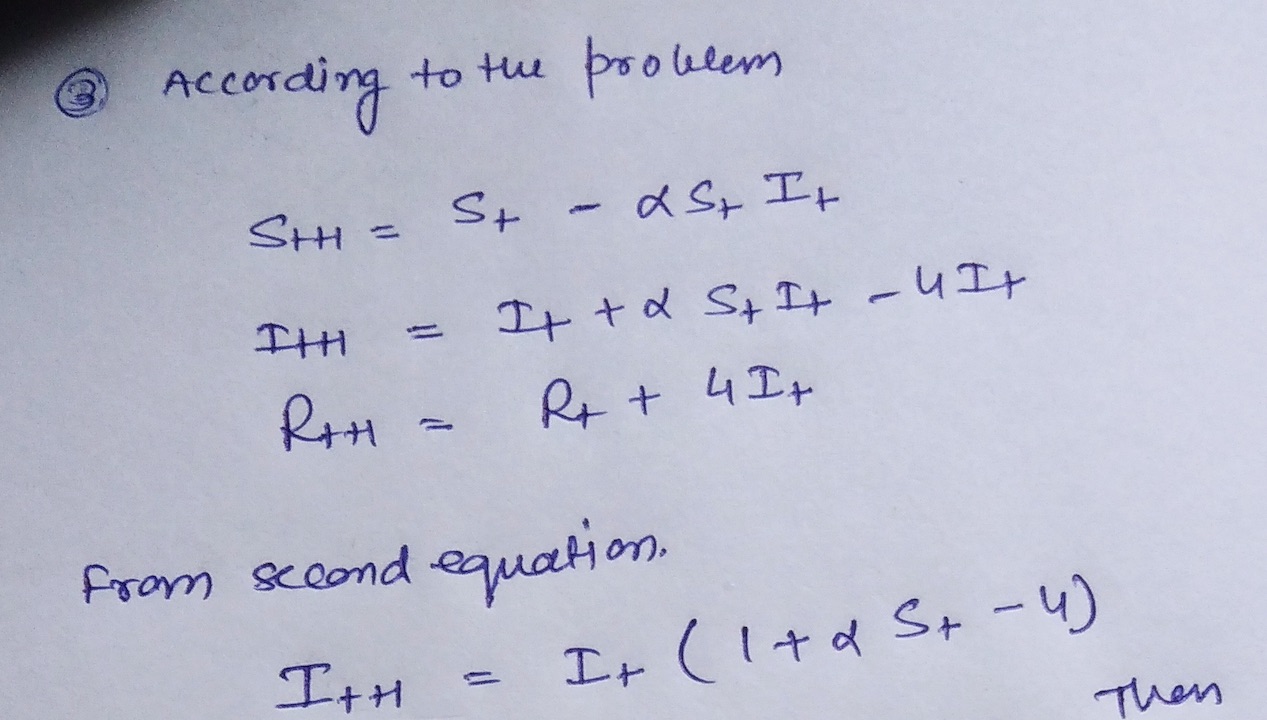 ③ According to the problem
S_{t+1} = S_t - α S_t I_t
I_{t+1} = I_t + α S_t I_t - 4 I_t
R_{t+1} = R_t + 4 I_t
From second equation.
I_{t+1} = I_t (1 + α S_t - 4)
Then